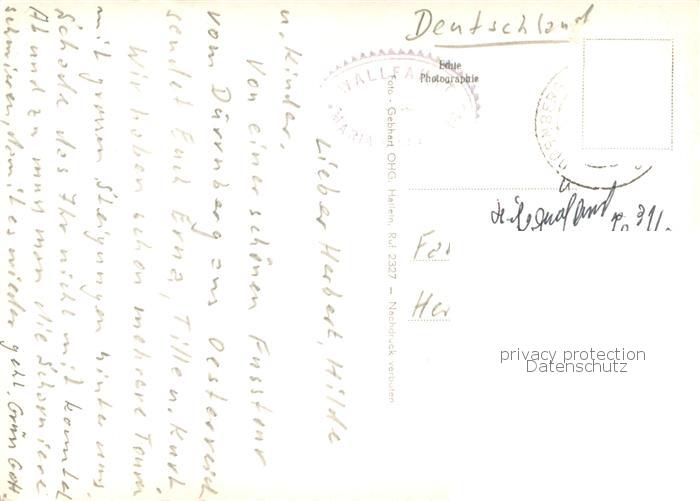 Deutschland
Echte
Photographie
WALLFAHRT
MARIA
Foto - Gebhart OHG, Hallein, Ruf 2327 — Nachdruck verboten
Lieber Herbert, Hilde
u. Kinder.
Von einer schönen Fusstour
vom Dürrnberg aus Oesterreich
sendet Euch Erna, Tilli u. Kurt
Wir haben schon mehrere Touren
mit grossen Steigungen hinter uns.
Schade das Ihr nicht mit konntet
Ab und zu muss man die Scharniere
schmieren, damit es wieder geht. Grüss Gott
Fa
Her
privacy protection
Datenschutz